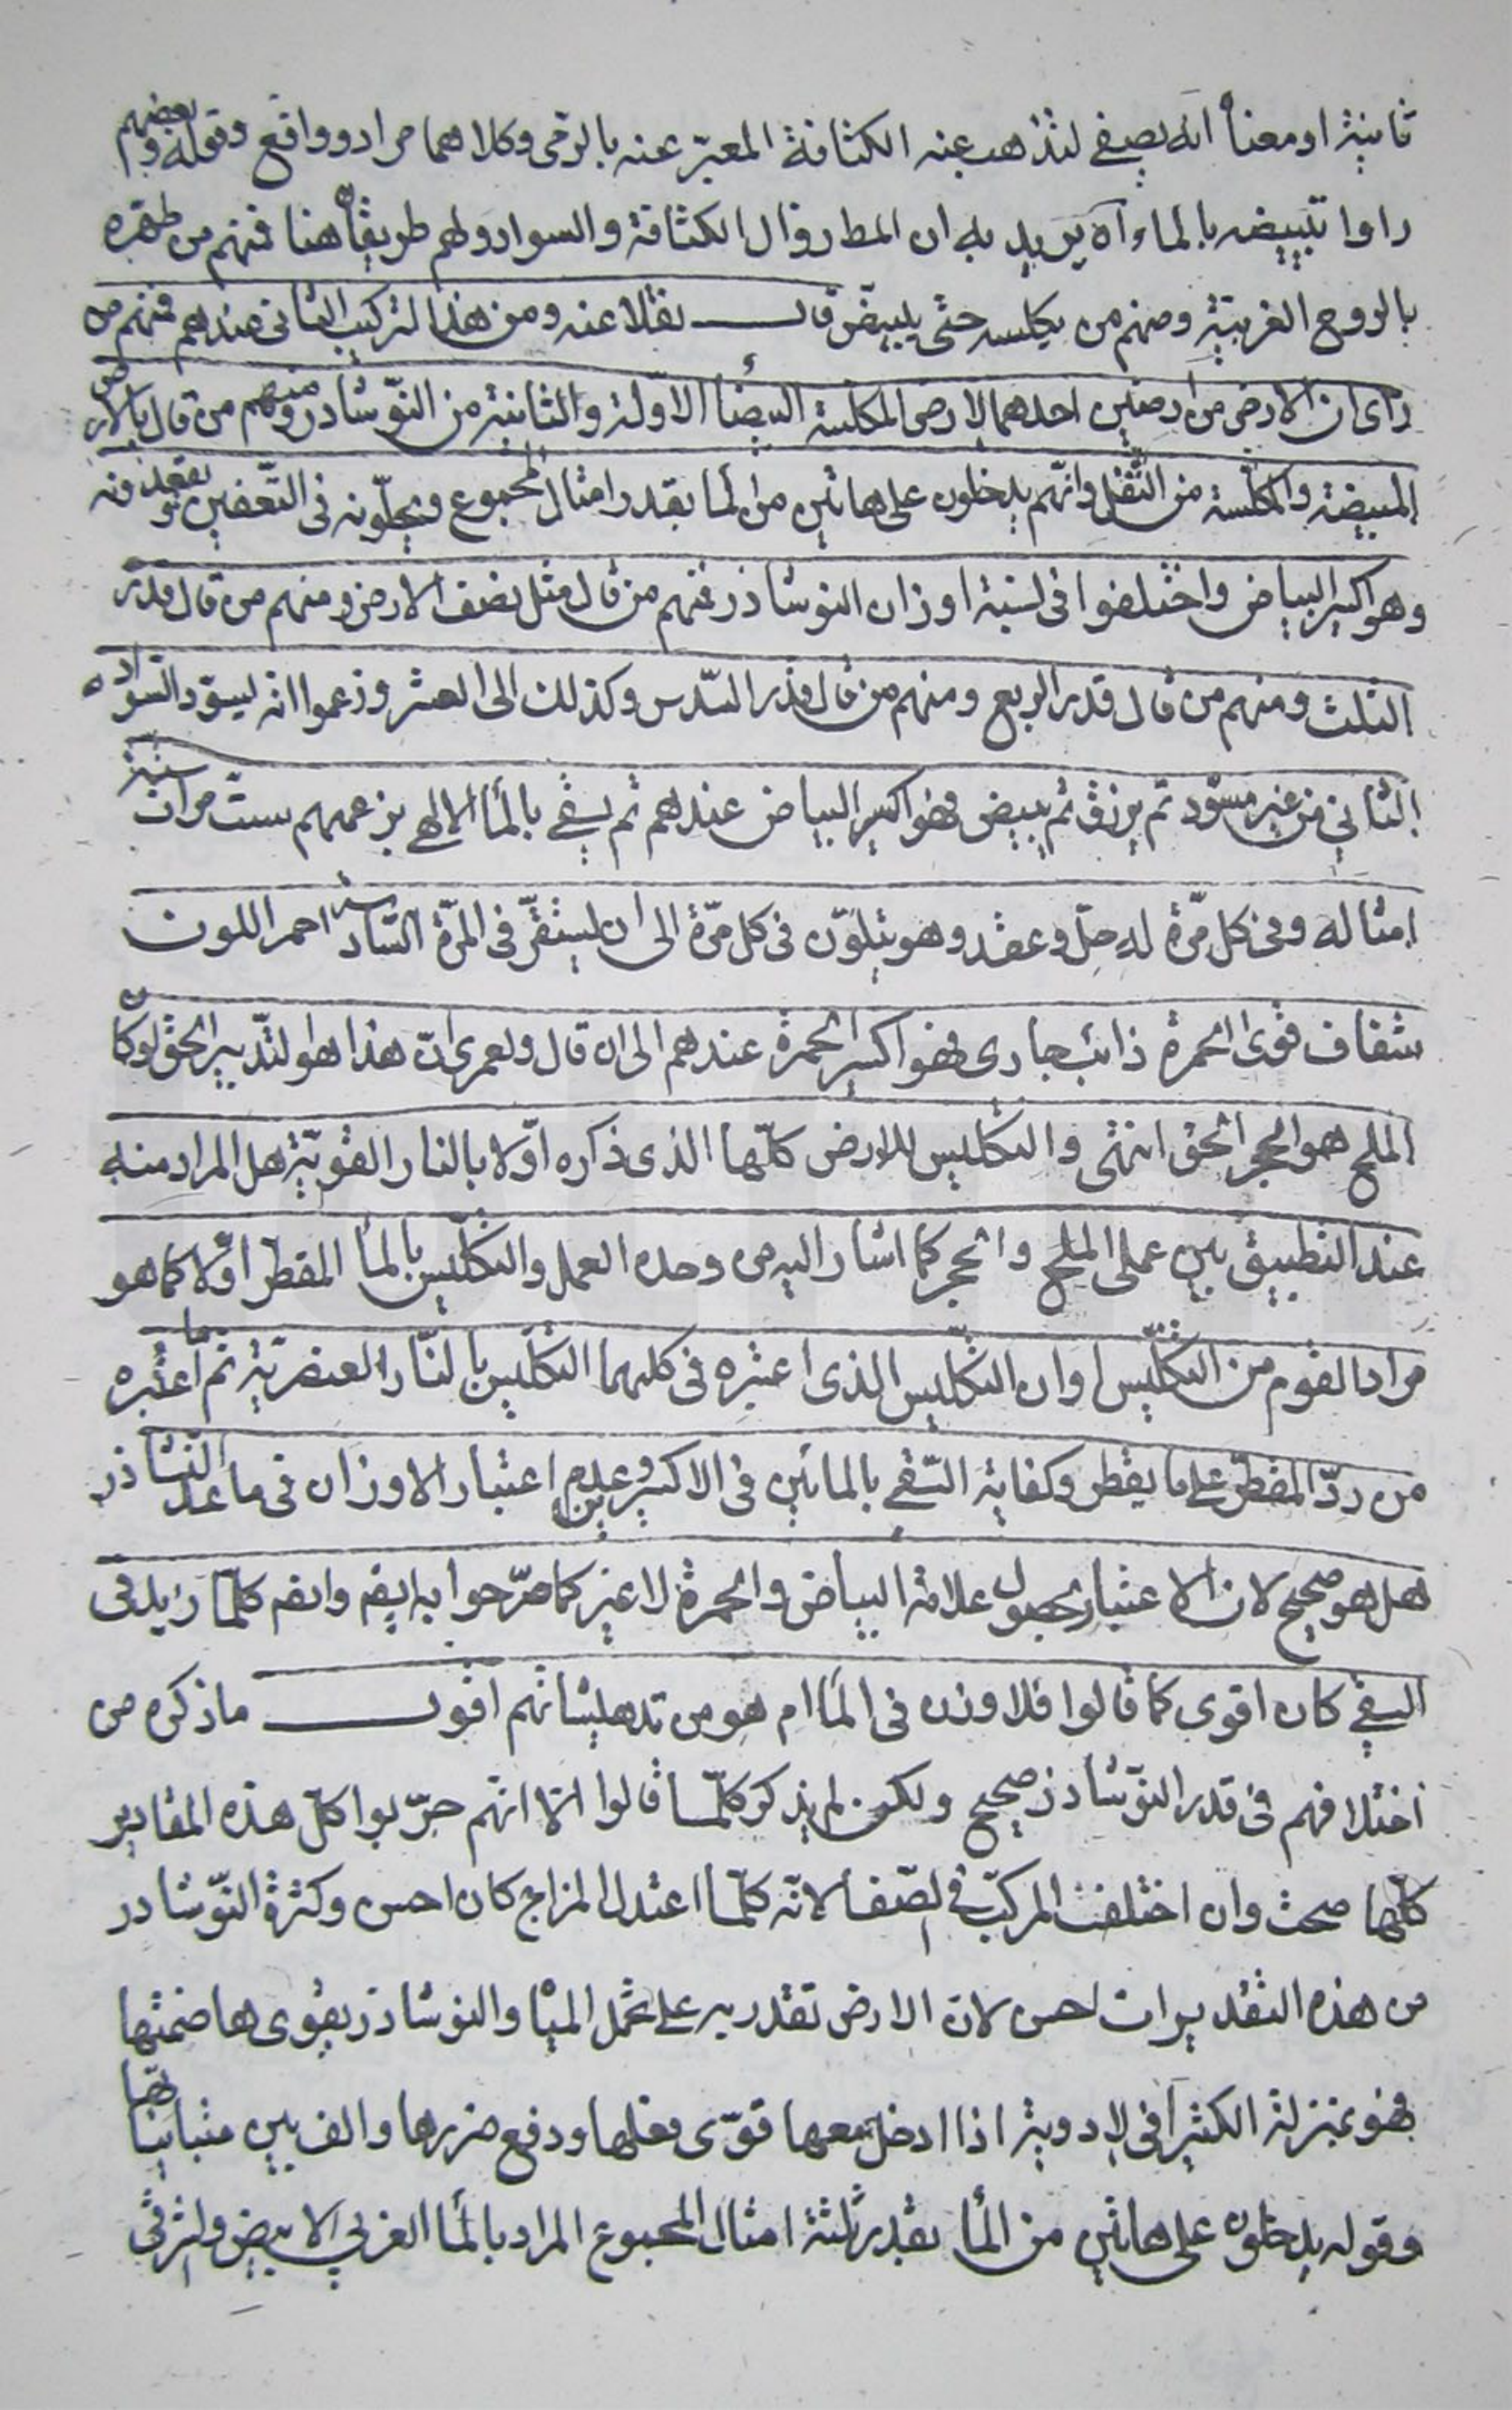 ثانية او معناه انه يصفى لتذهب عنه الكثافة المعبر عنه بالوخى وكلاهما مراد وواقع وقوله وبعضهم
راوا تبييضه بالماء آه يريد به ان المط زوال الكثافة والسواد ولهم طريقان هنا فمنهم من طهره
بالروح الغربية ومنهم من يكلسه حتى يبيض قال نقلا عنه ومن هذا التركيب الثانى عندهم فمنهم من
راى ان الارض من ارضين احدهما الارض المكلسة البيضا الاولة والثانية من النوشادر ومنهم من قال بالارض
المبيضة والمكلسة من الثفل وانهم يدخلون على هاتين من الما بقدر امثال المجموع ويحلونه فى التعفين ثم يعقدونه
وهو اكسير البياض واختلفوا فى نسبة اوزان النوشاذر فمنهم من قال مثل نصف الارض ومنهم من قال قدر
الثلث ومنهم من قال قدر الربع ومنهم من قال قدر السدس وكذلك الى العشر وزعموا انه يسود السواد
الثاني من غير مسود ثم يزرق ثم يبيض فهو اكسير البياض عندهم ثم يسقى بالما الالهى بزعمهم ست مرات ستة
امثاله وفى كل مرة له حل وعقد وهو يتلون فى كل مرة الى ان يستقر فى المرة السادسة احمر اللون
شفاف قوى الحمرة ذائب جارى فهو اكسير الحمرة عندهم الى ان قال ولعمرى ان هذا هو التدبير الحق لو كان
الملح هو الحجر الحق انتهى والتكليس للارض كلها الذى ذكره اولا بالنار القوية هل المراد منه
عند التطبيق بين عملى الملح والحجر كما اشار اليه من وحده العمل والتكليس بالما المقطر اولا كما هو
مراد القوم من التكليس او ان التكليس الذى اعتبره فى كليهما التكليس بالنار العنصرية ثم ما اعتبره
من رد المقطر على ما يقطر وكفاية السقى بالمائين فى الاكسيرين وعدم اعتبار الاوزان فى ما عدا النشاذر
هل هو صحيح لان الاعتبار بحصول علامة البياض والحمرة لا غير كما صرحوا به ايضه وايضه كلما زيد فى
السقى كان اقوى كما قالوا فلا وزن فى الما ام هو من تدهيشاتهم اقول ما ذكره من
اختلافهم فى قدر النوشاذر صحيح ولكن لم يذكر كلما قالوا الا انهم جربوا كل هذه المقادير
كلها صحت وان اختلفت المركب فى الصفا لانه كلما اعتدل المزاج كان احسن وكثرة النوشادر
من هذه التقديرات احسن لان الارض تقدر به على تحمل المياه والنوشاذر يقوى هاضمتها
فهو بمنزلة الكثيرا فى الادوية اذا ادخل معها قوى فعلها ودفع ضررها والف بين متبايناتها
وقوله يدخلون على هاتين من الما بقدر ثلثة امثال المجموع المراد بالما الغربي الابيض والشرقى